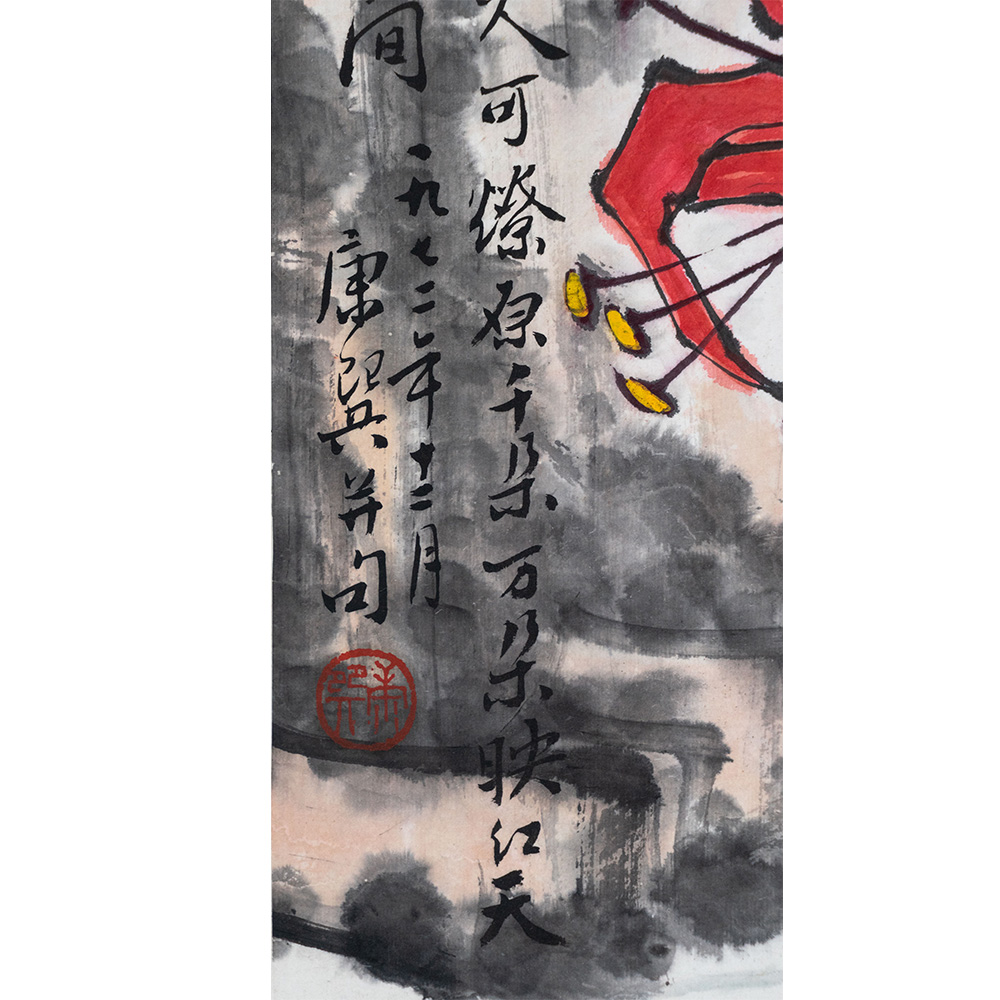 可燎原千朵万朵映红天
间一九七二年十二月
康巽并句